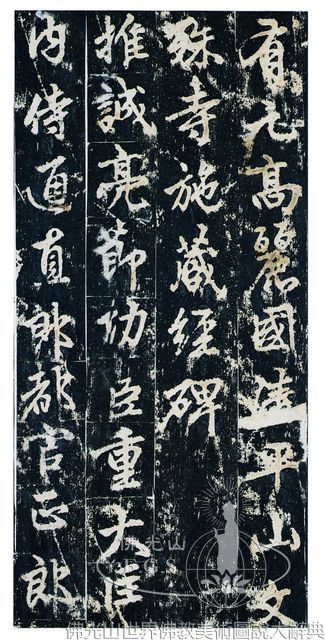 有元高麗國清平山文
殊寺施藏經碑
推誠亮節功臣重大匡
内侍通直郎都官正郎
佛光山
F.G.S.
佛光山世界佛教美術圖說大辭典